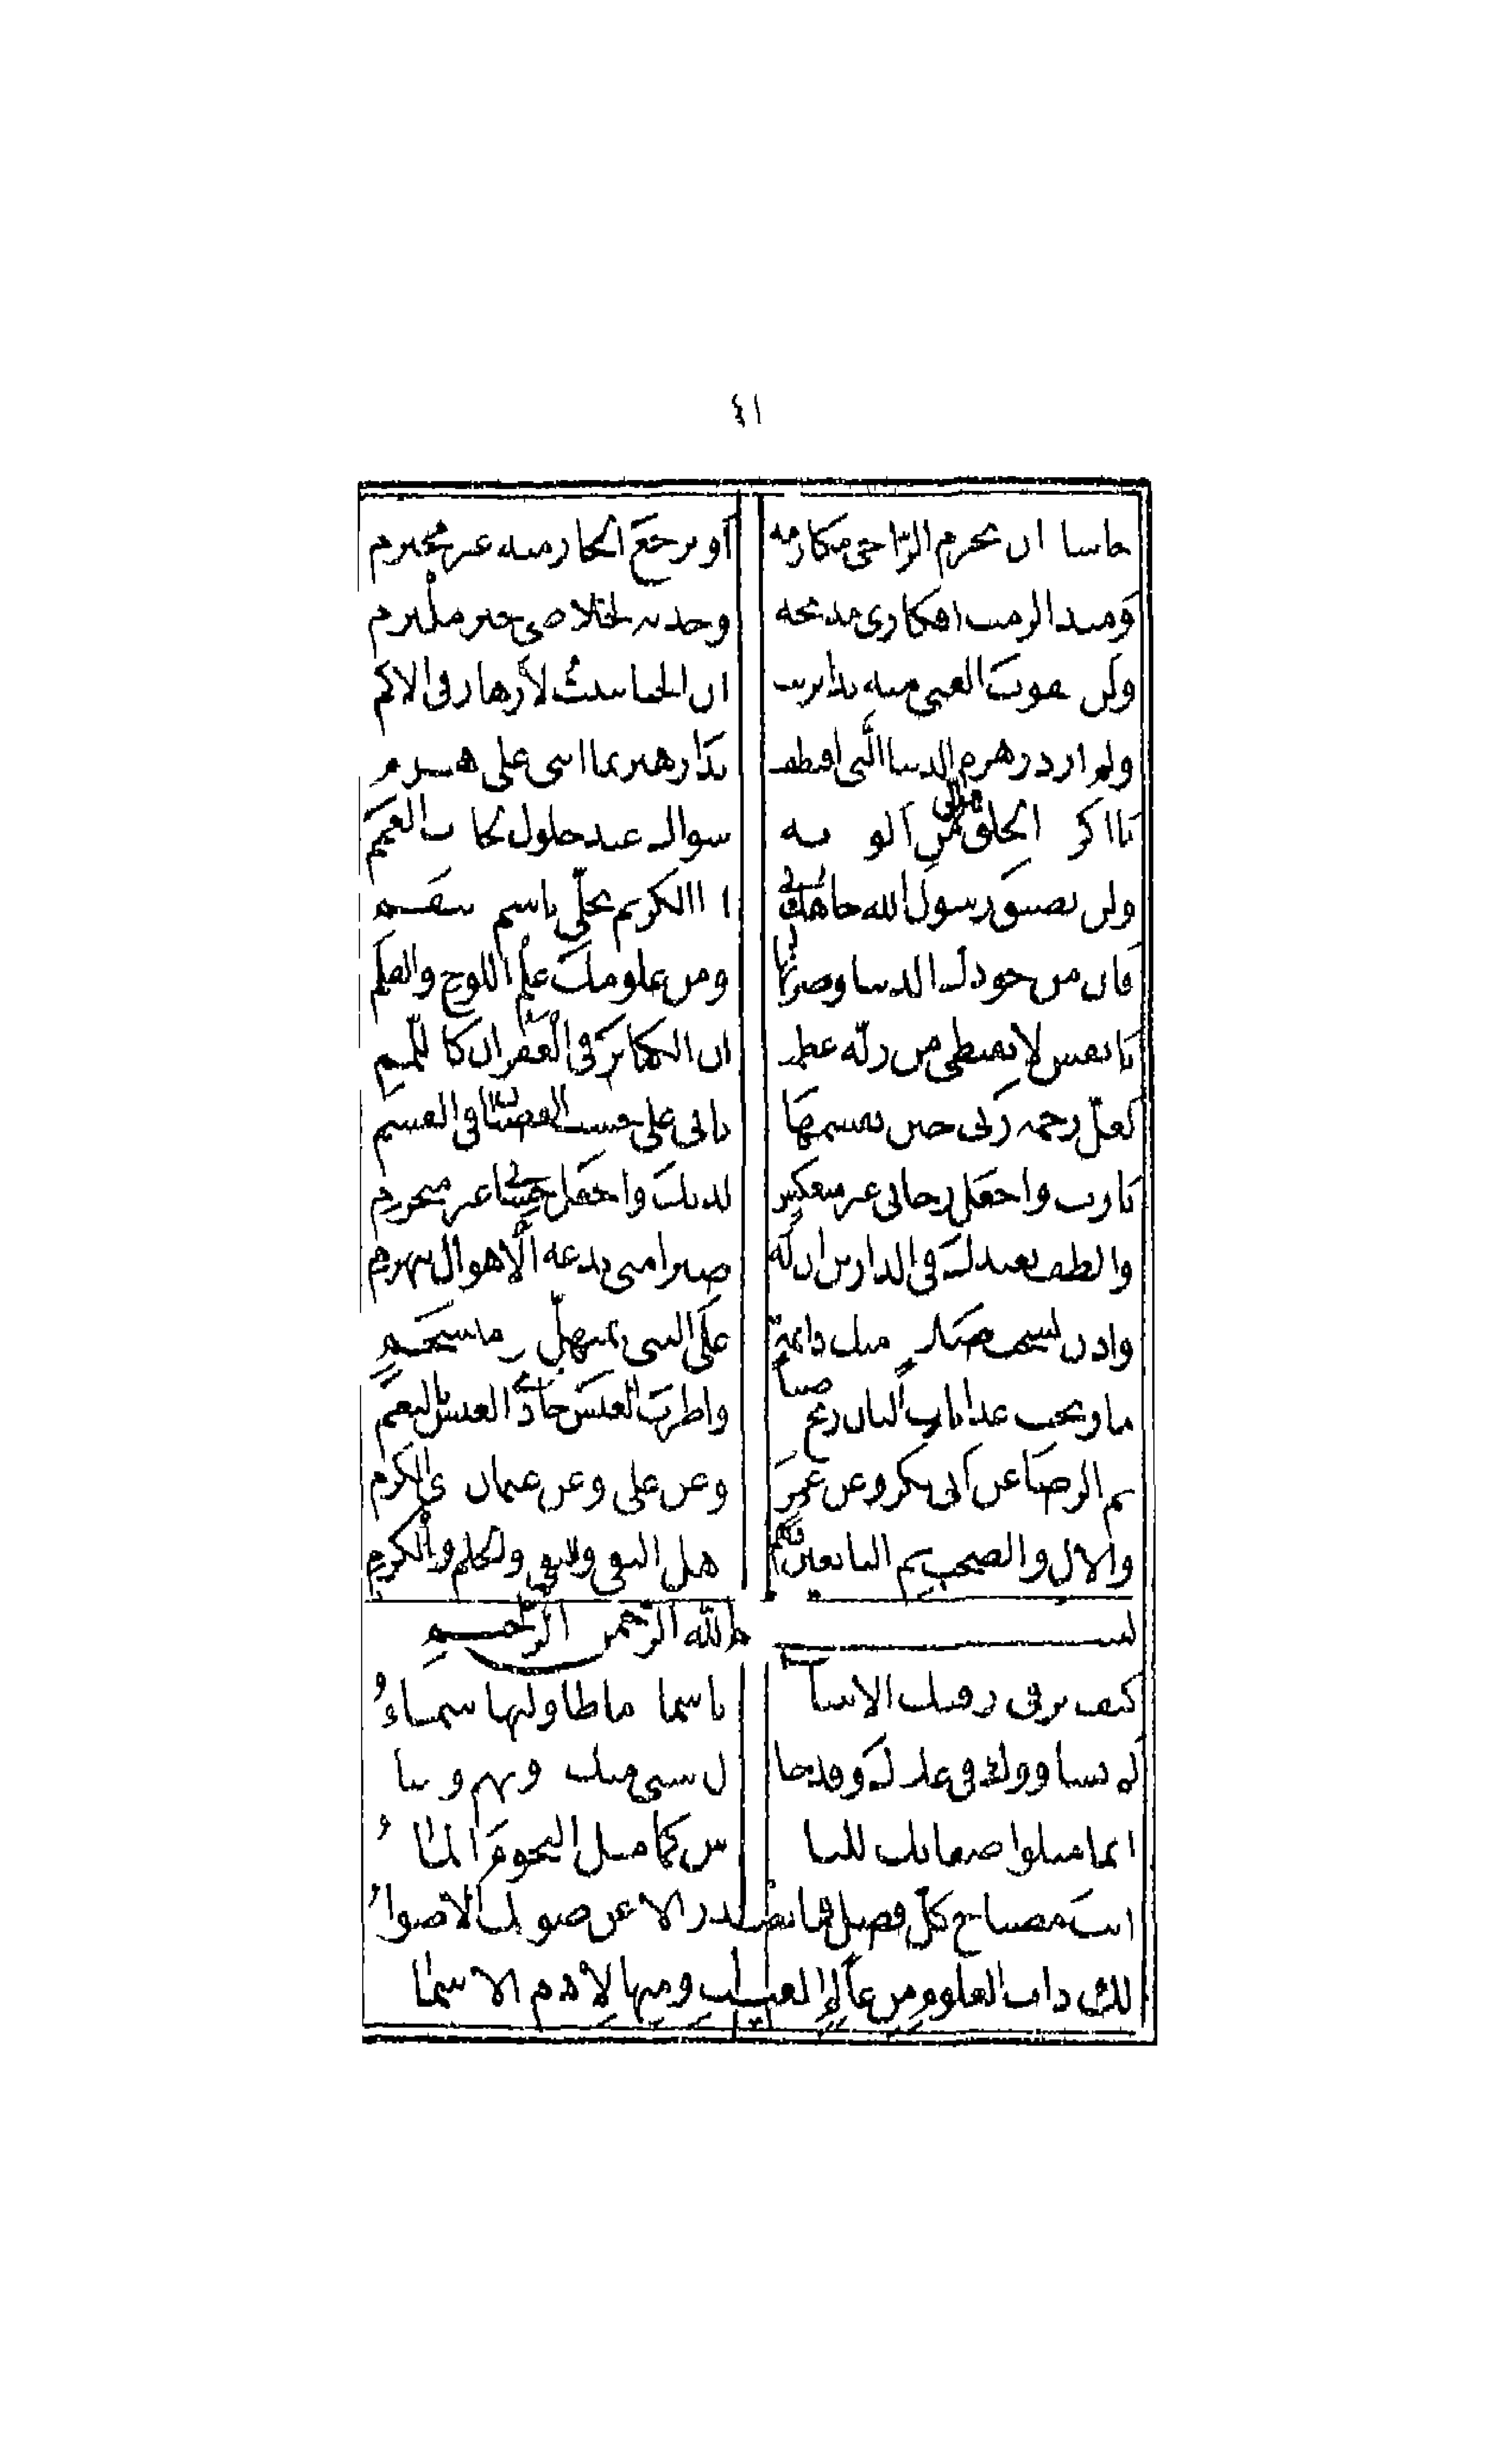 ٤١
حاشا ان يحرم الراجى مكارمه او يرجع الجار منه غير محترم
ومنذ الزمت افكارى مدائحه وجدته لخلاصى خير ملتزم
ولن يفوت الغنى منه يدا تربت ان الحيا ينبت الازهار فى الاكم
ولم ارد زهرة الدنيا التى اقتطفت يدا زهير بما اثنى على هرم
يا اكرم الخلق مالى من الوذ به سواك عند حلول الحادث العمم
ولن يضيق رسول الله جاهك بى اذا الكريم تحلى باسم منتقم
فان من جودك الدنيا وضرتها ومن علومك علم اللوح والقلم
يا نفس لا تقنطى من زلة عظمت ان الكبائر فى الغفران كاللمم
لعل رحمة ربى حين يقسمها تاتى على حسب العصيان فى القسم
يا رب واجعل رجائى غير منعكس لديك واجعل حسابى غير منخرم
والطف بعبدك فى الدارين ان له صبرا متى تدعه الاهوال ينهزم
واذن لسحب صلاة منك دائمة على النبى بمنهل ومنسجم
ما رنحت عذبات البان ريح صبا واطرب العيس حادى العيس بالنغم
ثم الرضا عن ابى بكر وعن عمر وعن على وعن عثمان ذى الكرم
والال والصحب ثم التابعين فهم اهل التقى والنقى والحلم والكرم
بسم الله الرحمن الرحيم
كيف ترقى رقيك الانبياء يا سماء ما طاولتها سماء
لم يساووك فى علاك وقد حا ل سنى منك دونهم وسناء
انما مثلوا صفاتك للنا س كما مثل النجوم الماء
انت مصباح كل فضل فما تصدر الا عن ضوئك الاضواء
لك ذات العلوم من عالم الغيب ومنها لادم الاسماء